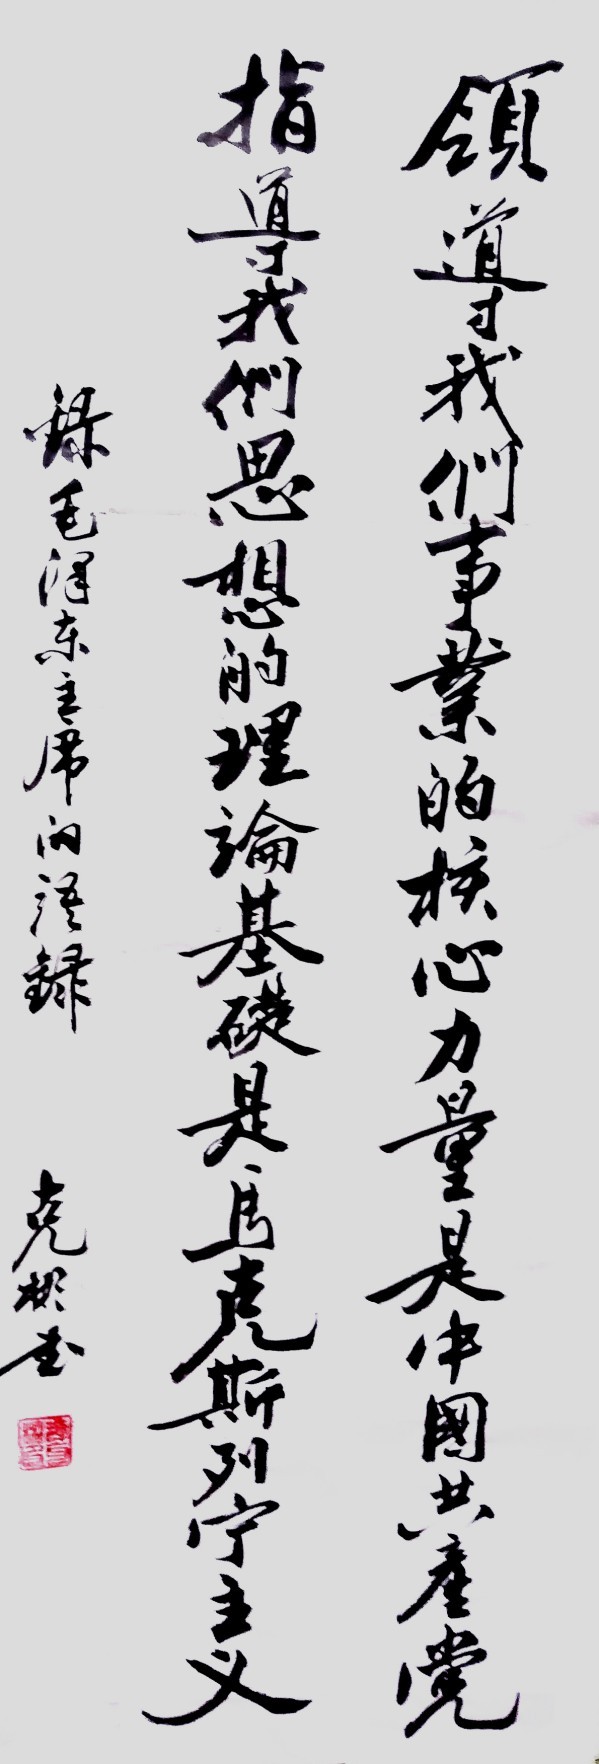 領導我們事業的核心力量是中國共產党
指導我們思想的理論基礎是馬克斯列宁主义
錄毛泽东主席的語錄
克彬书